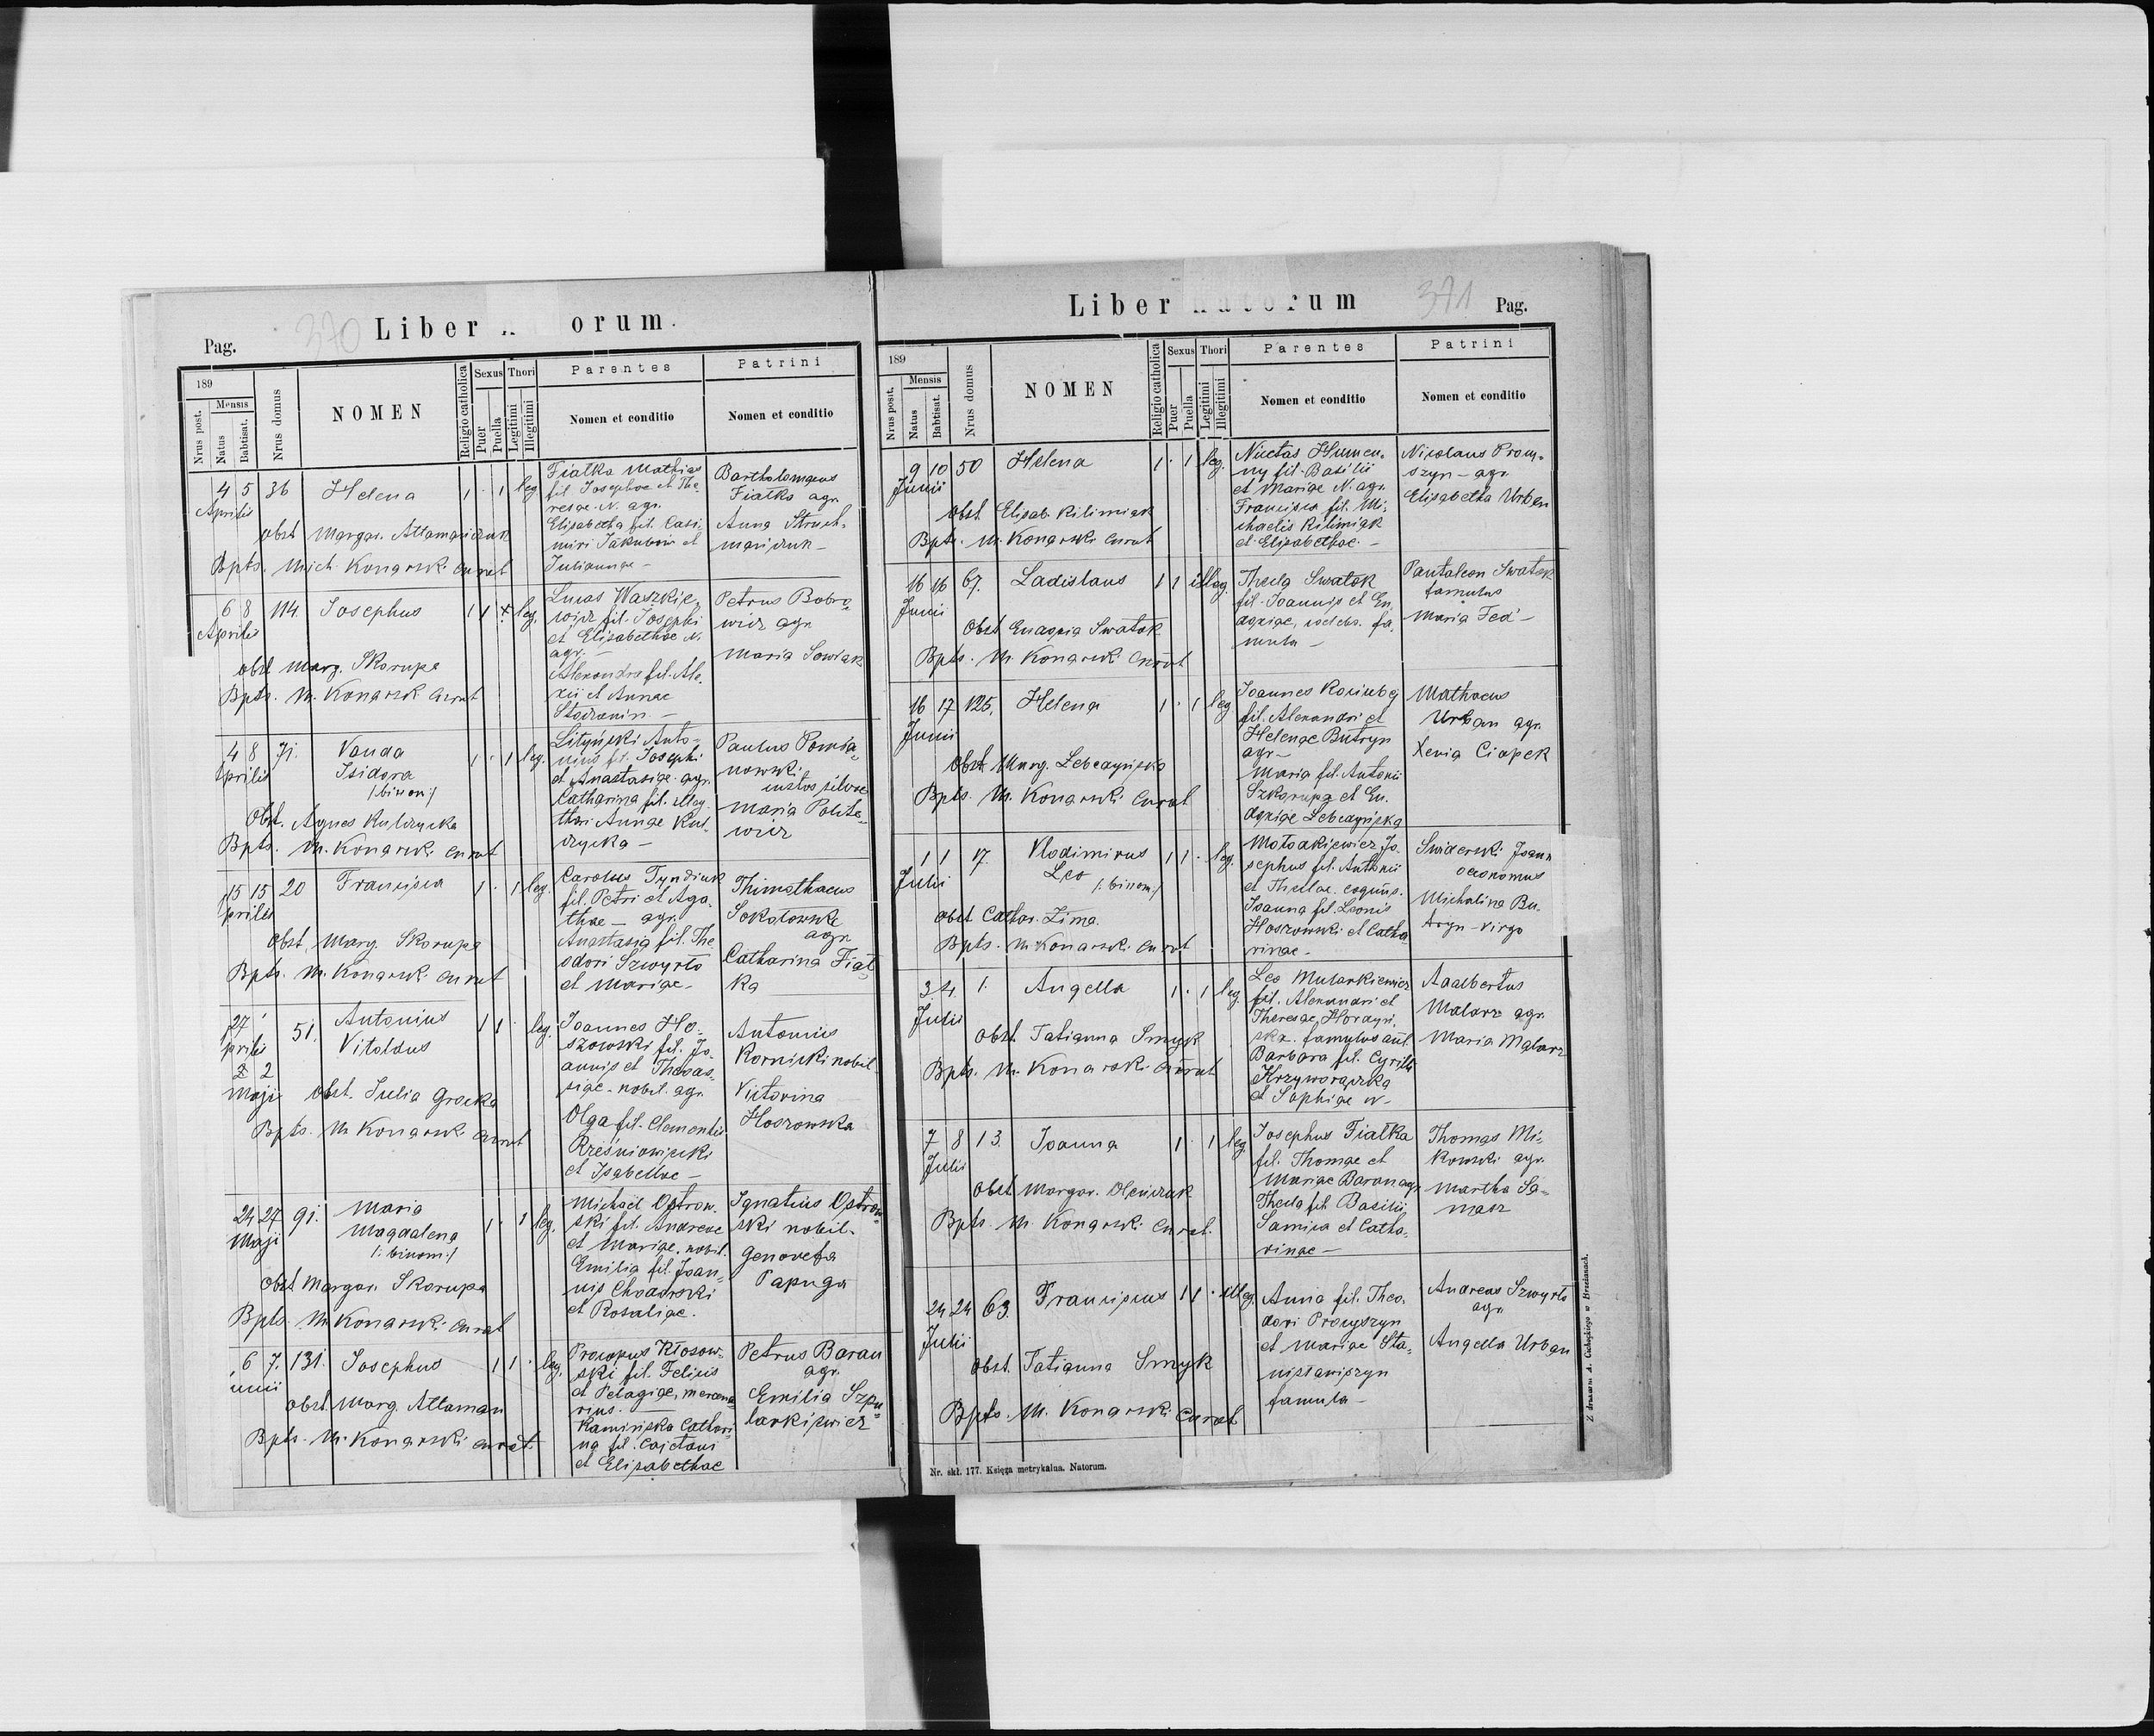 370
Liber orum.
Pag.
189
Nrus post.
Mensis
Natus
Babtisat.
Nrus domus
NOMEN
Religio catholica
Sexus
Puer
Puella
Thori
Legitimi
Illegitimi
Parentes
Nomen et conditio
Patrini
Nomen et conditio
4 5 36 Helena 1 · 1 leg
Aprilis
obst Margar. Attamańczuk
Bpts. Mich. Konarski Curat
Fiałka Mathias
fil Josephae et The-
resae N. agr.
Elisabetha fil. Casi-
miri Jakubów et
Juliannae -
Bartholomaeus
Fiałka agr.
Anna
6 8 114. Josephus 1 1 leg.
Aprilis
obst Marg. Skorupa
Bpts. M. Konarski Curat
Lucas Waszkie-
wicz fil. Josephi
et Elisabethae N.
agr. -
Alexandra fil. Ale-
xii et Annae
Petrus Bobro-
wicz agr.
Maria Sowiak
4 8 71. Vanda 1 · 1 leg.
Aprilis
Isidora
/:binom:/
Obst. Agnes Kulczycka
Bpts. M. Konarski Curat
Lityński Anto-
nius fil. Josephi
et Anastasiae agr.
Catharina fil. illeg.
thori Annae Kul-
czycka -
Paulus Pomia-
nowski
custos silvae
Maria Polite-
wicz
15 15 20 Francisca 1 · 1 leg.
prilis
Obst. Marg. Skorupa
Bpts. M. Konarski Curat
Carolus Tyndiuk
fil. Petri et Aga-
thae - agr.
Anastasia fil. The-
odori Szwyrło
et Mariae -
Thimothaeus
Sokołowski
agr.
Catharina Fiał-
ka
27 51. Antonius 1 1 · leg.
prilis
Vitoldus
2
Maji
obst. Julia Grocka
Bpts. M. Konarski Curat
Joannes Ho-
szowski fil. Jo-
annis et Thecas-
siae - nobil. agr.
Olga fil. Clementis
Rześniowiecki
et Isabellae -
Antonius
Kornicki nobil.
Victorina
Hoszowska
24 27 91. Maria 1 · 1 leg.
Maji
Magdalena
/:binom:/
Obst Margar. Skorupa
Bpts. M. Konarski Curat
Michael Ostrow-
ski fil. Andreae
et Mariae. nobil.
Emilia fil. Joan-
nis Chodorski
et Rosaliae.
Ignatius Ostrow-
ski nobil.
Genovefa
Papuga
6 7. 131. Josephus 1 1 · leg.
unii
obst. Marg. Attaman
Bpts. M. Konarski Curat.
Procopus Kłosow-
ski fil. Felicis
et Pelagiae, mercena-
rius. -
Kamińska Cathari-
na fil. Cajetani
et Elisabethae
Petrus Baran
agr.
Emilia Szpu-
larkiewicz
Liber natorum
371
Pag.
189
Nrus posit.
Mensis
Natus
Babtisat.
Nrus domus
NOMEN
Religio catholica
Sexus
Puer
Puella
Thori
Legitimi
Illegitimi
Parentes
Nomen et conditio
Patrini
Nomen et conditio
9 10 50 Helena 1 · 1 leg.
Junii
obst. Elisab. Kilimiak
Bpts. M. Konarski Curat
Nicetas Humen-
ny fil. Basilii
et Mariae N. agr.
Francisca fil. Mi-
chaelis Kilimiak
et Elisabethae. -
Nicolaus Prom-
szyn - agr.
Elisabetha Urban
16 16 67. Ladislaus 1 1 illeg.
Junii
Obst Eudoxia Swatok
Bpts. M. Konarski Curat
Thecla Swatok
fil. Joannis et Eu-
doxiae, coelebs. fa-
mula -
Pantaleon Swatok
famulus
Maria Fed -
16 17 125. Helena 1 · 1 leg
Junii
Obst. Marg. Lebedyńska
Bpts. M. Konarski Curat
Joannes
fil. Alexandri et
Helenae Butryn
agr -
Maria fil. Antonii
Szkorupa et Eu-
doxiae Lebedyńska
Mathaeus
Urban agr.
Xenia Ciapek
1 1 17. Vlodimirus 1 1 · leg.
Julii
Leo
/:binom:/
obst Cathar. Zima.
Bpts. M. Konarski Curat
Mołodkiewicz Jo-
sephus fil. Antonii
et Theclae. coquus.
Joanna fil. Leonis
Hoszowski et Catha-
rinae -
Swiderski Joan
oeconomus
Michalina Bu-
tryn - virgo
3 4. 1. Angella 1 · 1 leg.
Julii
obst. Tatianna Smyk
Bpts. M. Konarski Curat
Leo Mularkiewicz
fil. Alexandri et
Theresae
famulus aul.
Barbara fil. Cyrilli
Krzyworączka
et Sophiae N -
Adalbertus
Malarz agr.
Maria Malarz
7 8 13. Joanna 1 · 1 leg.
Julii
obst Margar. Oleńczuk
Bpts. M. Konarski Curat.
Josephus Fiałka
fil. Thomae et
Mariae Baran agr.
Thecla fil. Basilii
Samica et Catha-
rinae -
Thomas Mi-
kowski agr.
Martha Sa-
macz
24 24 63. Franciscus 1 1 · illeg.
Julii
obst. Tatianna Smyk
Bpts. M. Konarski Curat
Anna fil. Theo-
dori Procyszyn
et Mariae Sta-
nisławiszyn
famula -
Andreas Szwyrło
agr.
Angella Urban
Nr. skł. 177. Księga metrykalna. Natorum.
Z drukarni A. Cichockiego w Brzeżanach.